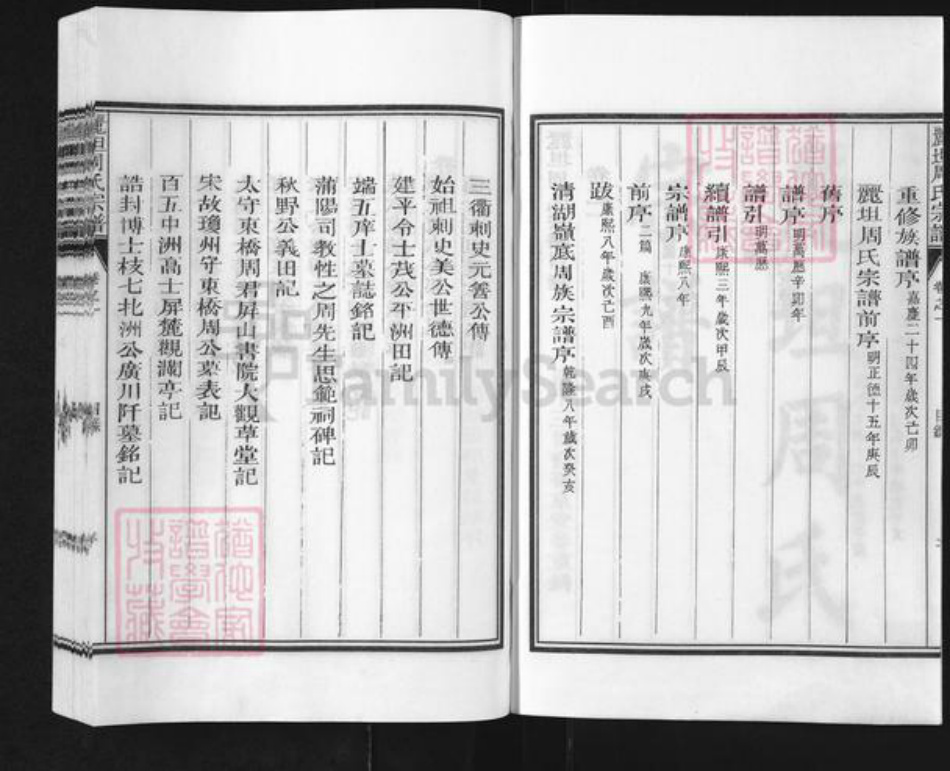 重修族譜序 嘉慶二十四年歲次己卯
麗坦周氏宗譜前序 明正德十五年庚辰
舊序
譜序 明萬曆辛卯年
譜引 明萬曆
續譜引 康熙三年歲次甲辰
宗譜序 康熙八年
前序 二篇 康熙九年歲次庚戌
跋 康熙八年歲次己酉
清湖嶺底周族宗譜序 乾隆八年歲次癸亥
三衢刺史元奮公傳
始祖刺史美公世德傳
建平令士茂公平洲田記
端五庠士墓誌銘記
蒲陽司教性之周先生思範祠碑記
秋野公義田記
太守東橋周君屏山書院大觀草堂記
宋故瓊州守東橋周公墓表記
百五中洲高士屏麓觀瀾亭記
誥封博士枝七北洲公廣川阡墓銘記
FamilySearch